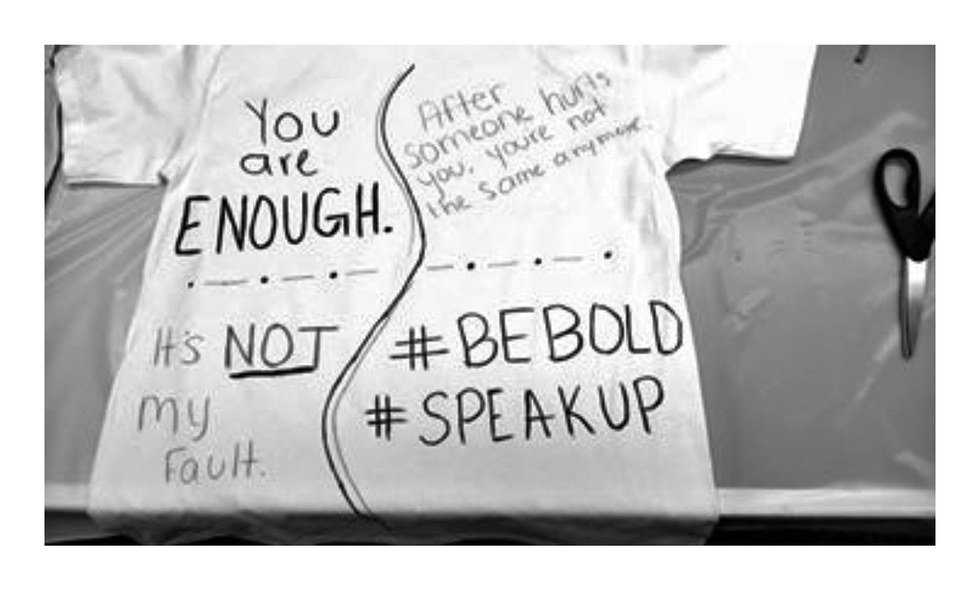 You
are
ENOUGH.
After
someone hurts
you, you're not
the same anymore.
It's NOT
my
Fault.
#BEBOLD
#SPEAKUP